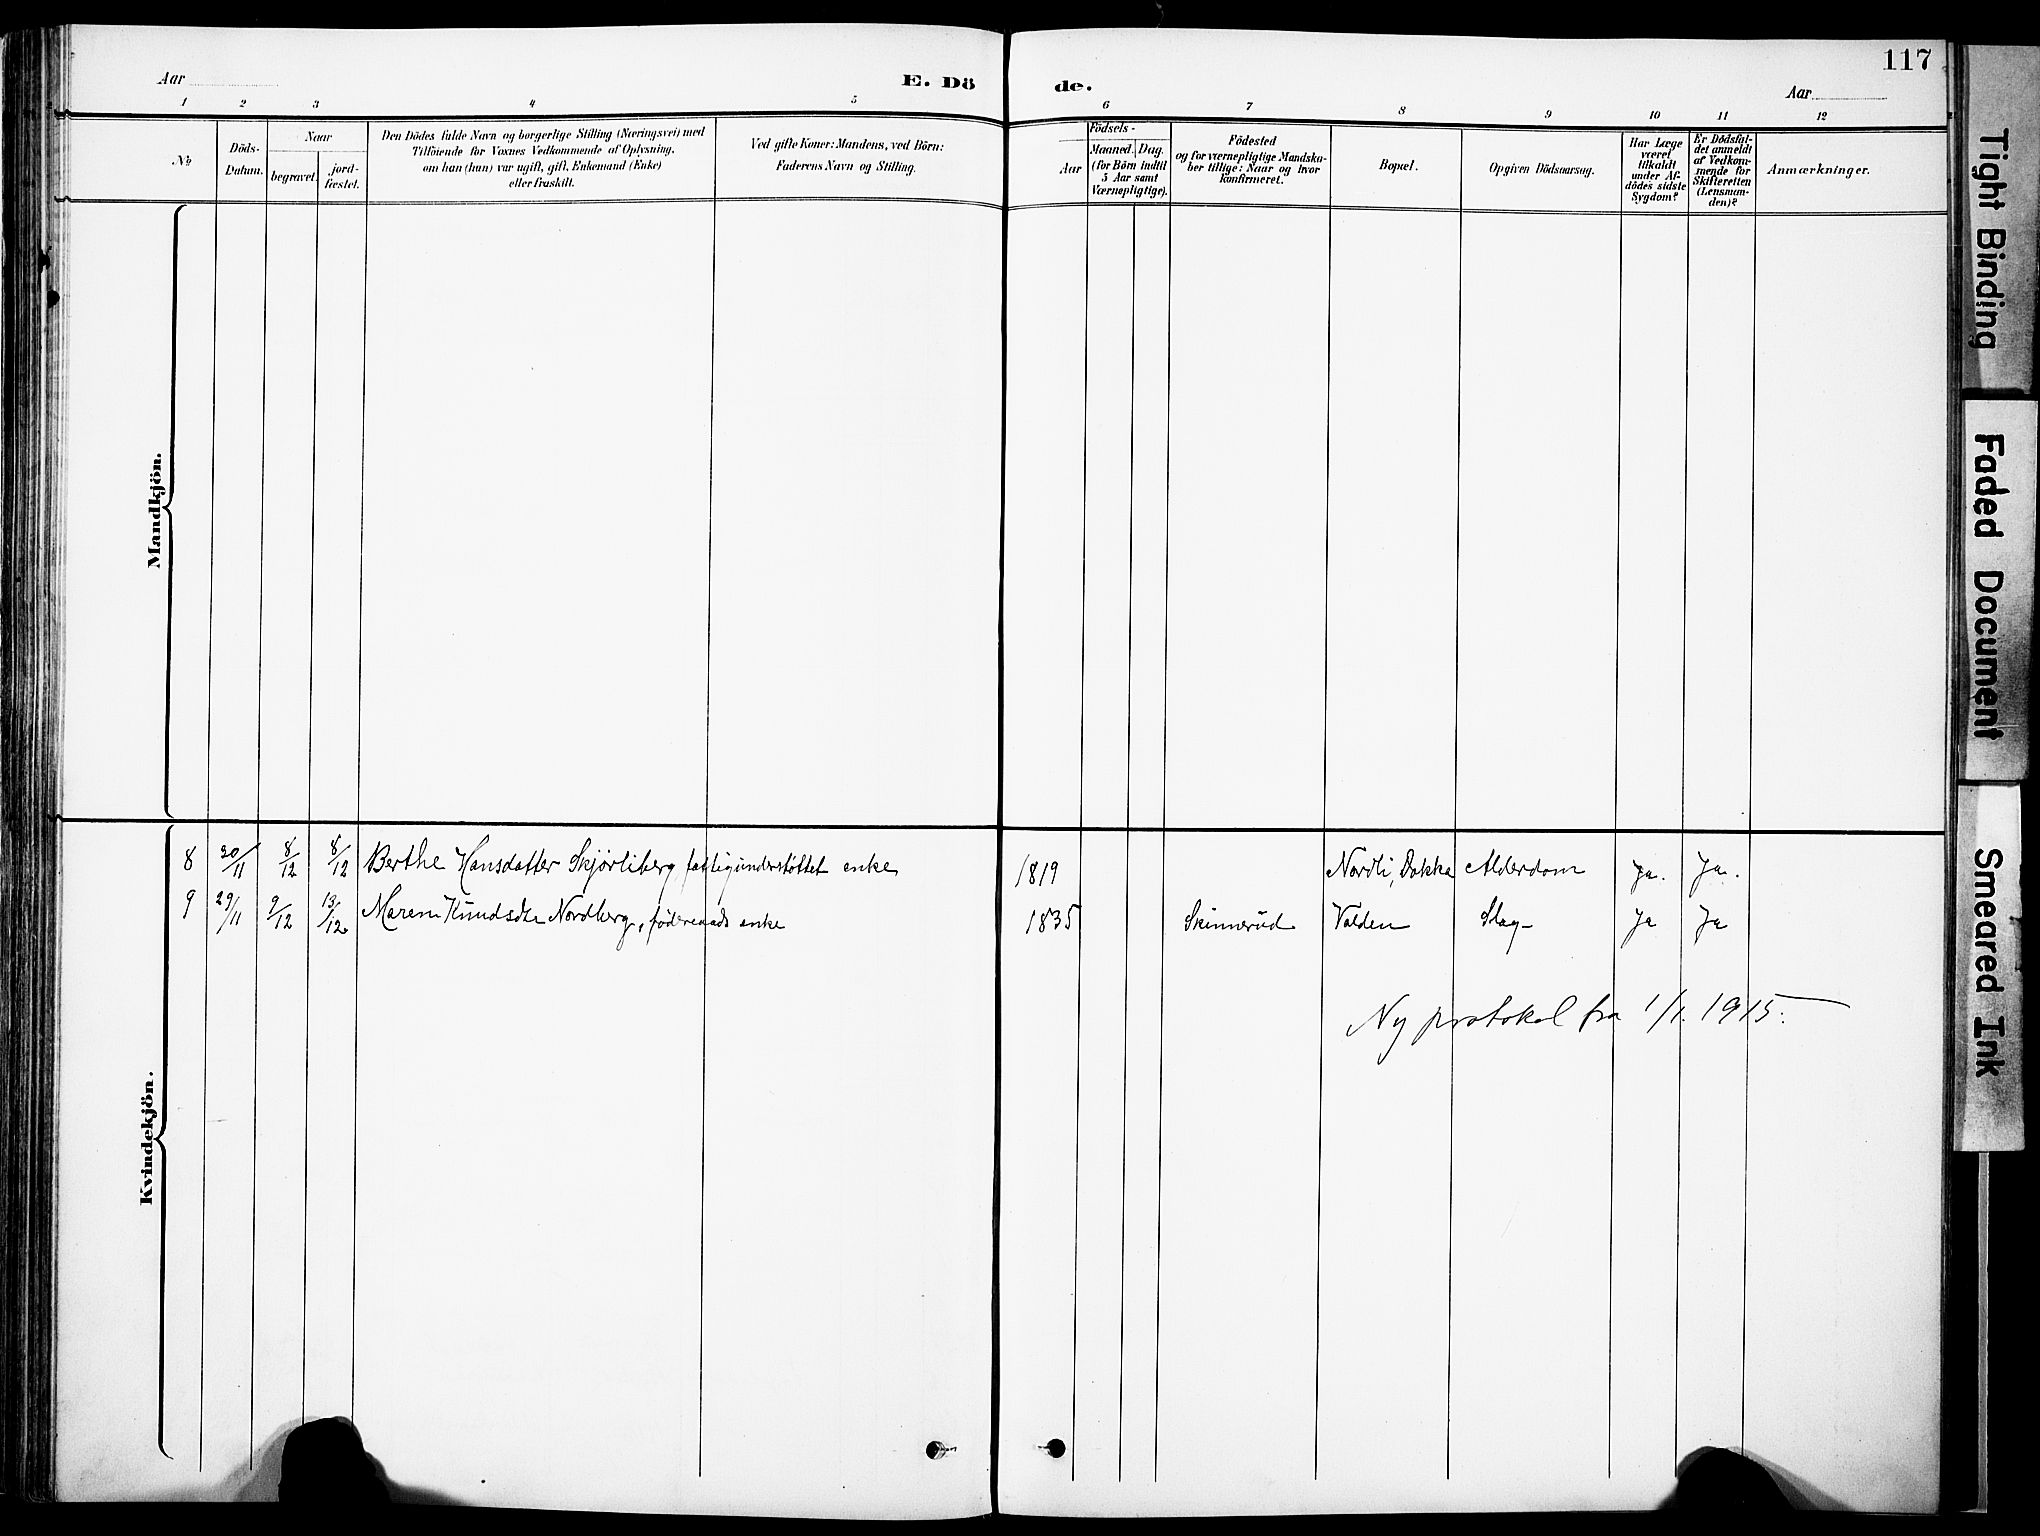 117
Aar
E. Dö
de.
Aar
1 2 3 4 5 6 7 8 9 10 11 12
No
Döds-
Datum.
Naar
begravet.
jord-
fæstet.
Den Dödes fulde Navn og borgerlige Stilling (Næringsvei) med
Tilföiende for Voxnes Vedkommende af Oplysning,
om han (hun) var ugift, gift, Enkemand (Enke)
eller fraskilt.
Ved gifte Koner: Mandens, ved Börn:
Faderens Navn og Stilling.
Födsels-
Aar
Maaned. Dag.
(for Börn indtil
5 Aar samt
Værnepligtige).
Födested
og for værnepligtige Mandska-
ber tillige: Naar og hvor
konfirmeret.
Bopæl.
Opgiven Dödsaarsag.
Har Læge
været
tilkaldt
under Af-
dödes sidste
Sygdom?
Er Dödsfal-
det anmeldt
af Vedkom-
mende for
Skifteretten
(Lensman-
den)?
Anmærkninger.
Mandkjön.
Kvindekjön.
8 30/11 8/12 8/12 Berthe Hansdatter Skjørliberg fattigunderstøttet enke 1819 Nordli, Dokka Alderdom Ja. Ja.
9 29/11 9/12 13/12. Maren Knudsdtr Nordberg, føderaads enke 1835 Skinnerud Volden Slag Ja Ja
Ny protokol fra 1/1. 1915.
Tight Binding
Faded Document
Smeared Ink